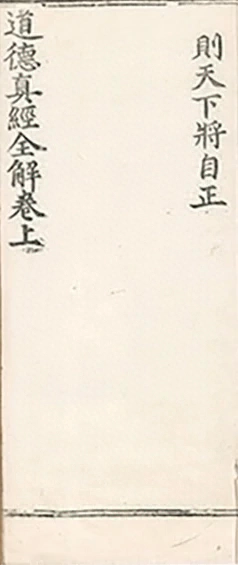 則天下將自正
道德真經全解卷上